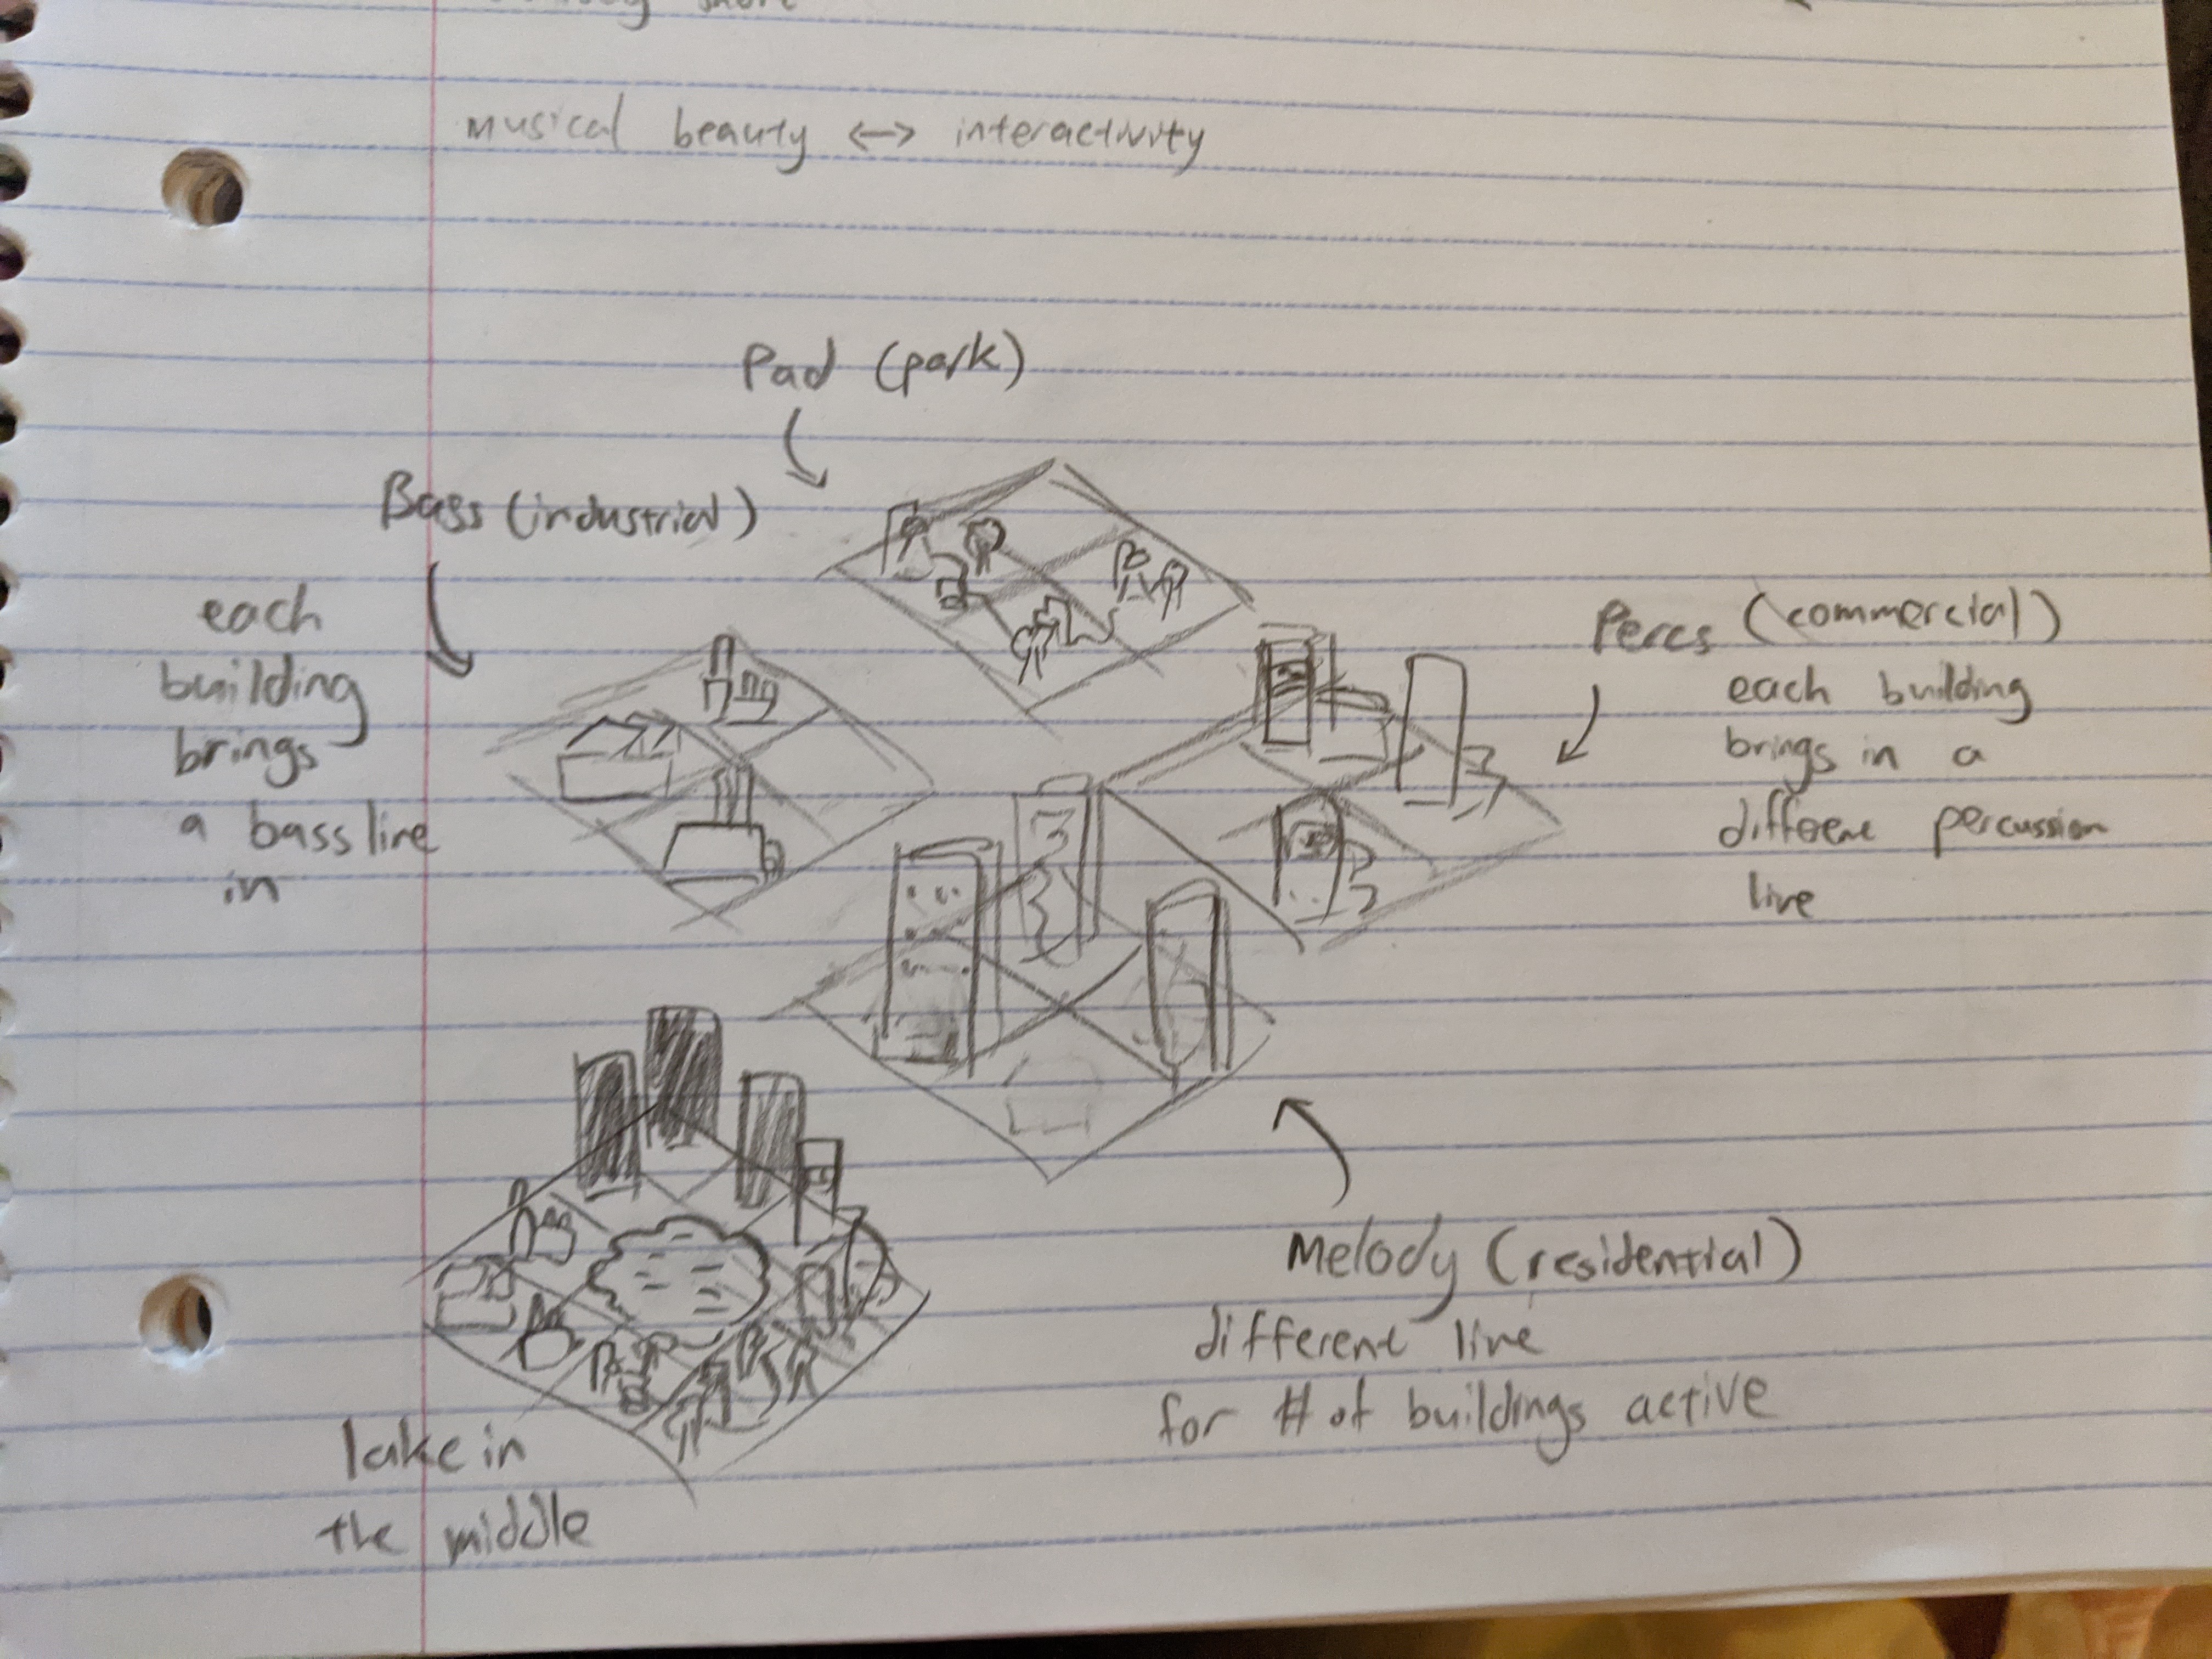 musical beauty <-> interactivity
Pad (park)
Bass (industrial)
each
building
brings
a bass line
in
Percs (commercial)
each building
brings in a
different percussion
line
Melody (residential)
different line
for # of buildings active
lake in
the middle